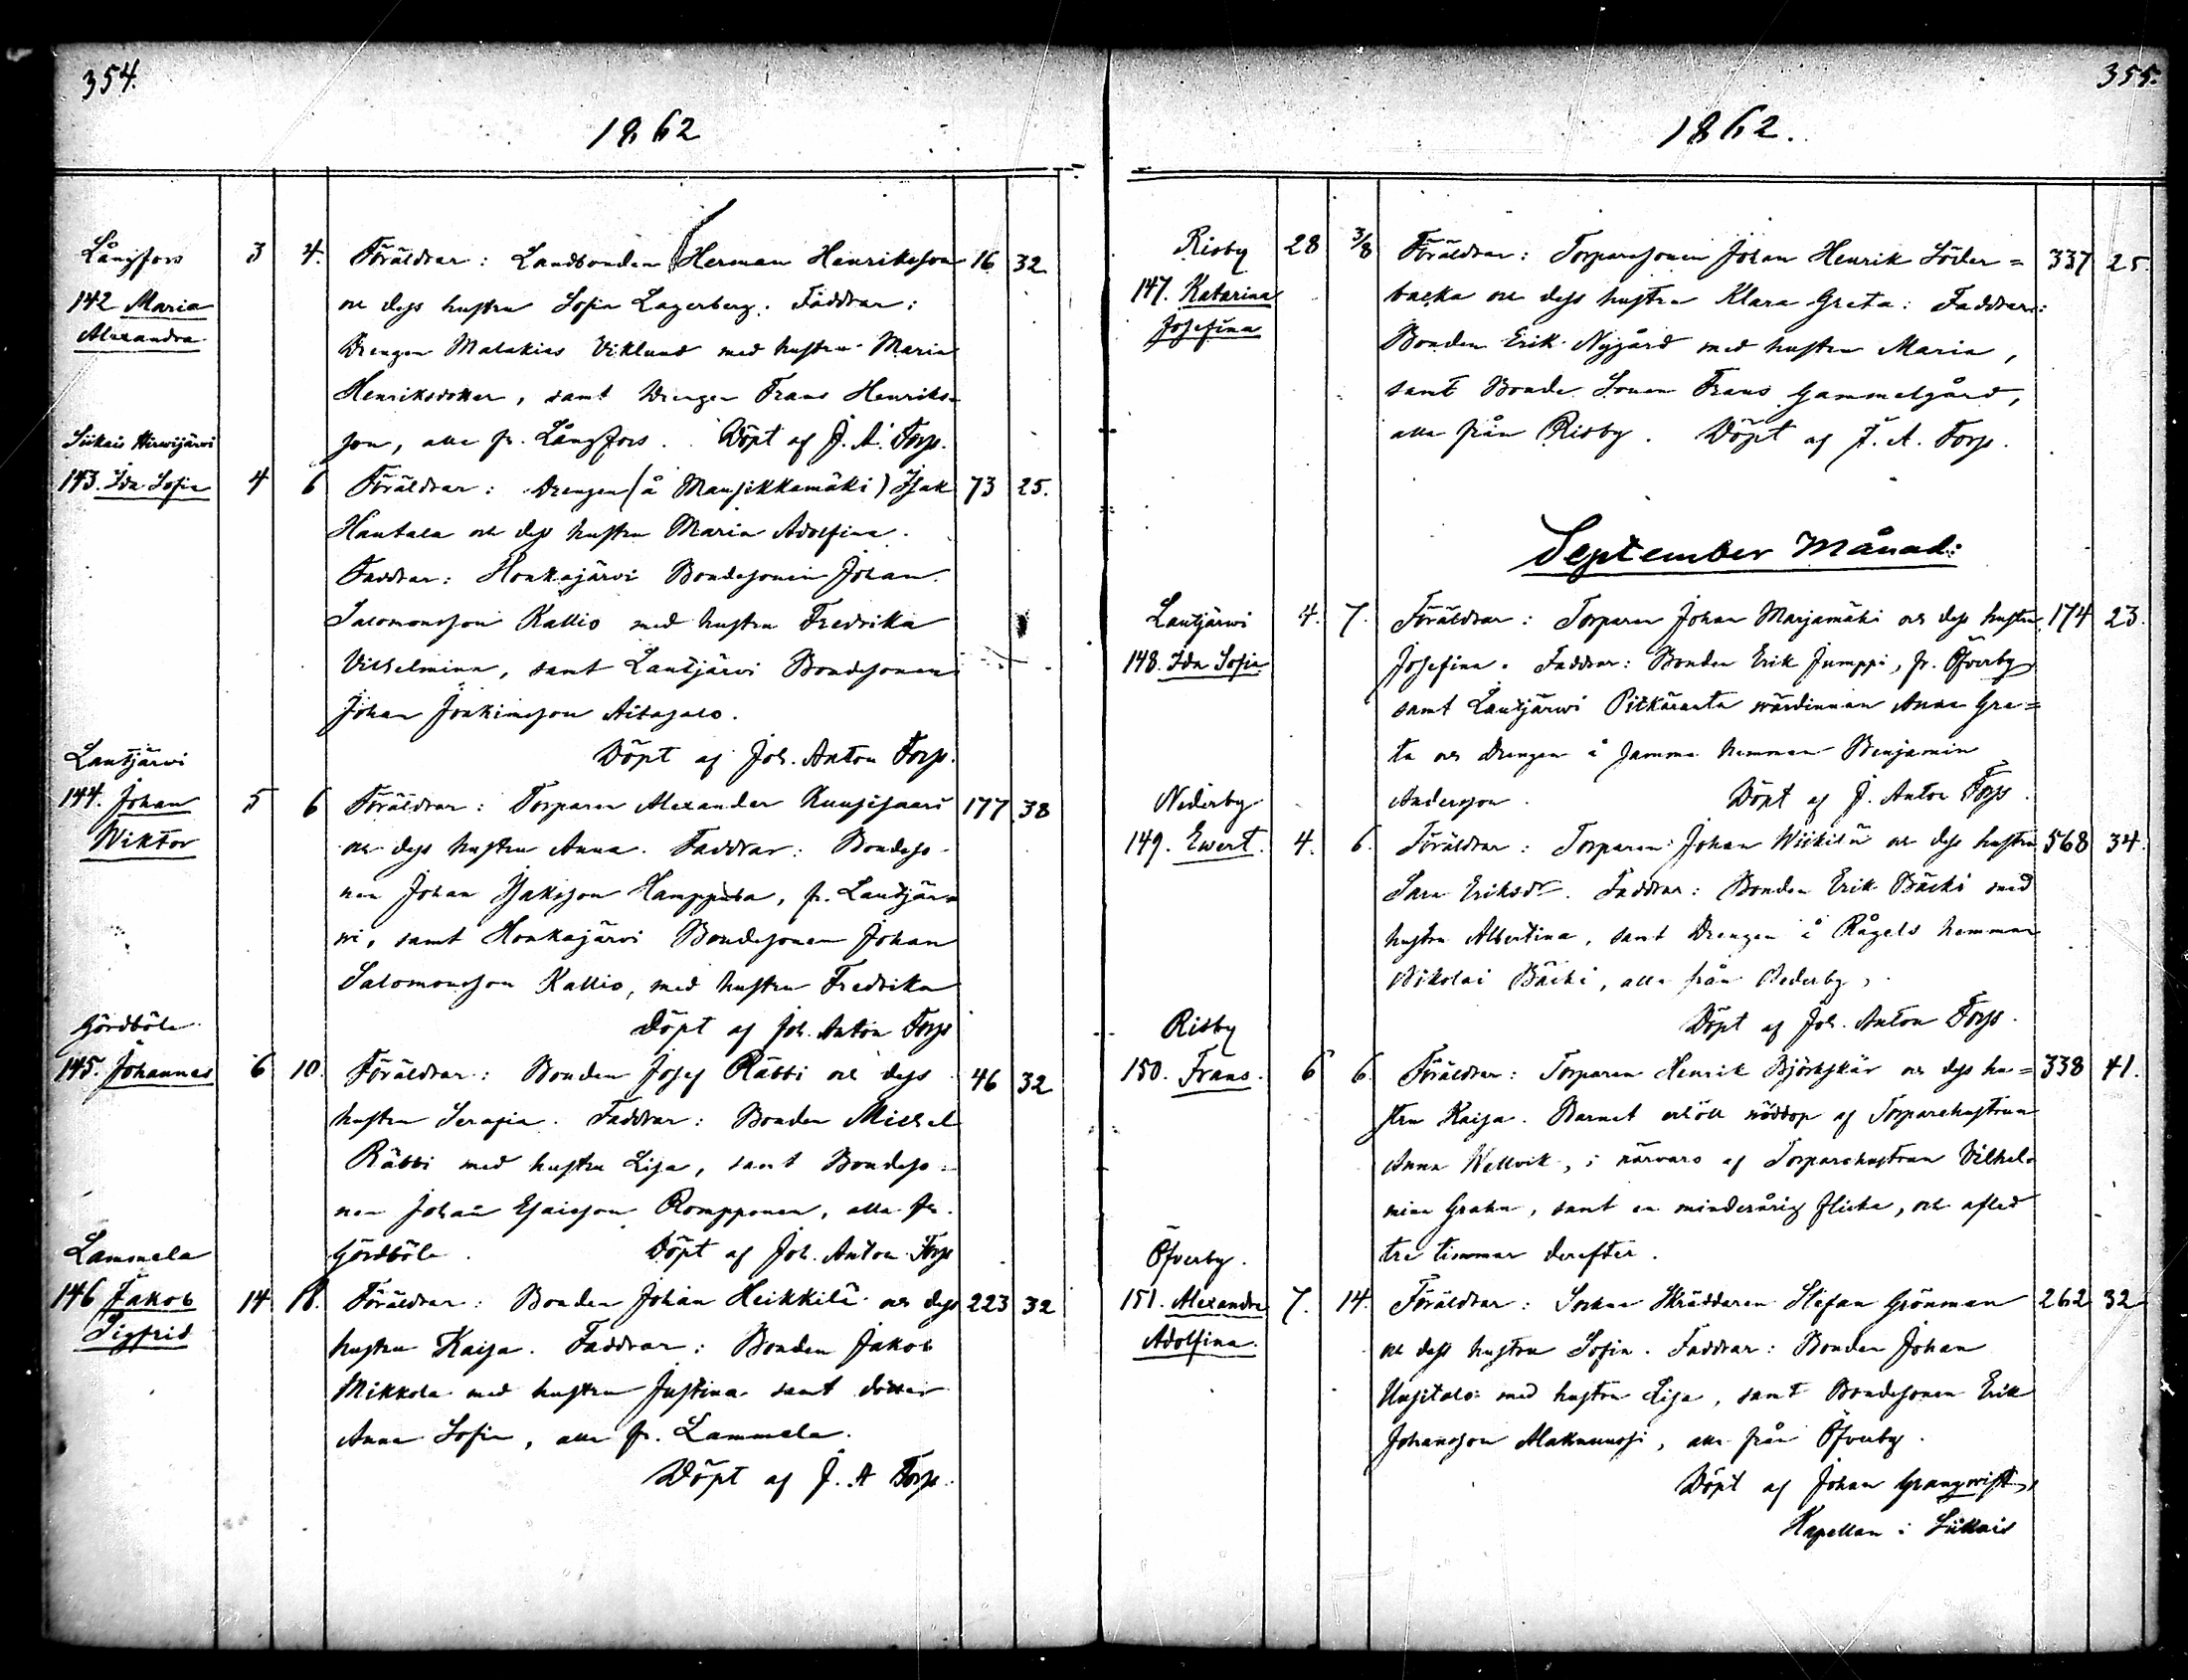 354.
1862
Långfors
142 Maria
Alexandra
3 4. Föräldrar: Landbonden Herman Henriksson 16 32
och dess hustru Sofia Lagerberg. Faddrar:
Drengen Malakias Viklund med hustru Maria
Henriksdotter, samt Drengen Frans Henriks-
son, alla fr. Långfors. Döpt af J. A. Torp.
Siikais Hirvijärvi
143. Ida Sofia
4 6 Föräldrar: Drengen (å Mansikkamäki) Isak 73 25.
Hautala och dess hustru Maria Adolfina.
Faddrar: Honkajärvi Bondesonen Johan
Salomonsson Kallio med hustru Fredrika
Vilhelmina, samt Lautjärvi Bondesonen
Johan Joakimsson Aitasalo.
Döpt af Joh. Anton Torp.
Lautjärvi
144. Johan
Wiktor
5 6 Föräldrar: Torparen Alexander Kuusisaari 177 38
och dess hustru Anna. Faddrar: Bondeso-
nen Johan Isaksson , fr. Lautjär-
vi, samt Honkajärvi Bondesonen Johan
Salomonsson Kallio, med hustru Fredrika
Döpt af Joh. Anton Torp
Gördböle
145. Johannes
6 10. Föräldrar: Bonden Josef Räbbi och dess 46 32
hustru Serafia. Faddrar: Bonden Michel
Räbbi med hustru Lisa, samt Bondeso-
nen Johan Esaisson Rompponen, alla fr.
Gördböle. Döpt af Joh. Anton Torp
Lammela
146 Jakob
Sigfrid
14 18. Föräldrar: Bonden Johan Heikkilä och dess 223 32
hustru Kaisa. Faddrar: Bonden Jakob
Mikkola med hustru Justina samt dotter
Anna Sofia, alla fr. Lammela.
Döpt af J. A Torp.
355.
1862.
Risby
147. Katarina
Josefina
28 3/8 Föräldrar: Torparesonen Johan Henrik Söder= 337 25.
backa och dess hustru Klara Greta. Faddrar:
Bonden Erik Nygård med hustru Maria,
samt Bonde Sonen Frans Gammelgård,
alla från Risby. Döpt af J. A. Torp.
September Månad:
Lautjärvi
148. Ida Sofia
4. 7. Föräldrar: Torparen Johan Marjamäki och dess hustru 174 23.
Josefina. Faddrar: Bonden Erik Jumppi, fr. Öfverby
samt Lautjärwi Pitkäranta wärdinnan Anna Gre=
ta och Drengen å samma hemman Benjamin
Andersson. Döpt af J. Anton Torp.
Nederby
149. Ewert.
4. 6. Föräldrar: Torparen Johan och dess hustru 568 34.
Sara Eriksdr. Faddrar: Bonden Erik Bäcki med
hustru Albertina, samt Drengen å Rågels hemman
Nikolai Bäcki, alla från Nederby.
Döpt af Joh. Anton Torp.
Risby
150. Frans.
6 6. Föräldrar: Torparen Henrik Björkskär och dess hu= 338 41.
stru Kaisa. Barnet erhöll nöddop af Torparehustrun
Anna Wellvik, i närvaro af Torparehustrun Vilhel-
mina Grahn, samt en minderårig flicka, och afled
tre timmar derefter.
Öfverby.
151. Alexandra
Adolfina.
7. 14. Föräldrar: Sockne Skräddaren Stefan Grönman 262 32
och dess hustru Sofia. Faddrar: Bonden Johan
Uusitalo med hustru Lisa, samt Bondesonen Erik
Johansson , alla från Öfverby.
Döpt af Johan Granqvist,
Kapellan i Siikais